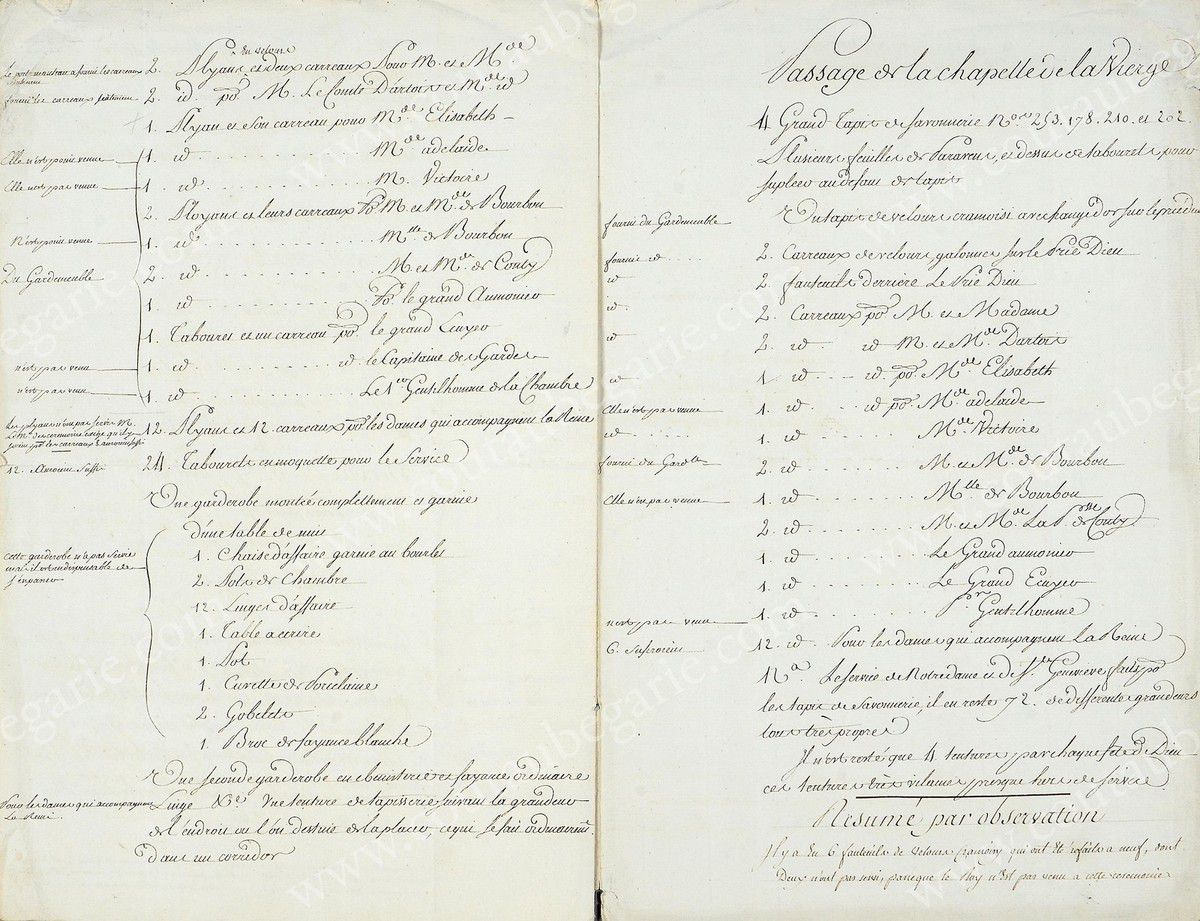 Le porte manteau a fourni les carreaux
fourni les carreaux
2. Plyans et deux carreaux Pour M. et Mde
En velours
2. id. po. M. Le Comte Dartois et Mde id
1. Plyan et Son carreau pour Mde Elisabeth
Elle n'est point venue 1. id Mde adelaide
Elle n'est pas venue 1. id M. Victoire
2. Ployans et leurs carreaux Po. M. et Mde de Bourbon
N'est point venue 1. id Mlle de Bourbon
Du Gardemeuble 2. id M. et Mde de Conty
1. id Po. le grand Aumonier
1. Tabouret et un carreau po. le grand Ecuyer
n'est pas venu 1. id id le Capitaine des Gardes
n'est pas venu 1. id Le 1er Gentilhomme de la Chambre
Les plyans n'ont pas servis M.
Le Mtre des ceremonies exige qu'il y
12. Plyans et 12 carreaux po. les dames qui accompagnent la Reine
12. Amoient Suffi
24. Tabourets en moquette pour le Service
Une garderobe montée complettement et garnie
D'une table de nuis
Cette garderobe n'a pas servie
mais il est indispensable de
s'en passer
1. Chaise d'affaire garnie au bourlet
2. Pots de Chambre
12. Linges d'affaire
1. Table a ecrire
1. Pot
1. Cuvette de Porcelaine
2. Gobelets
1. Broc de fayance blanche
Une seconde garderobe en ebenisterie et fayance ordinaire
Pour les dames qui accompagnent
La Reine.
Linge &ca Une tenture de tapisserie suivant la grandeur
de l'endroit ou l'on destine de la placer, ce qui se fait ordinairemt.
dans un corridor
Passage de la chapelle de la Vierge
4 Grand Tapis de Savonnerie Nos. 253. 178. 210. et 202.
Plusieurs feuilles de Paravent, et dessus de tabourets, pour
supleer au defaut de tapis
fourni du Gardemeuble
Un tapis de velours cramoisi avec frange d'or sur le priedieu
fournis id 2. Carreaux de velours galonnés sur le Prie Dieu
id 2. fauteuils derriere Le Prie Dieu
id 2. Carreaux po. M. et Madame
id 2. id id M. et Mde Dartois
id 1. id id po. Mde Elisabeth
Elle n'est pas venue 1. id id po. Mde adelaide
id 1. id Mde Victoire
fourni du Garde 2. id M. et Mde de Bourbon
Elle n'est pas venue 1. id Mlle de Bourbon
2. id M. et Mde La P. de Conty
1. id Le Grand aumonier
1. id Le Grand Ecuyer
n'est pas venu 1. id Pr. Gentilhomme
6. Suffiroient 12. id Pour les dames qui accompagnent La Reine
Na. Le service de Notre dame et de Ste Genevieve faits po.
les tapis de Savonnerie, il en reste 72. de differentes grandeurs
tous très propres
Il n'est resté que 4 tentures par chaque fête de Dieu
ces tentures très vilaines presque hors de service
Résumé par observation
Il y a Eu 6 fauteuils de velours cramoisy qui ont été refaits a neuf, dont
Deux n'ont pas servi, parceque le Roy n'est pas venu a cette ceremonie